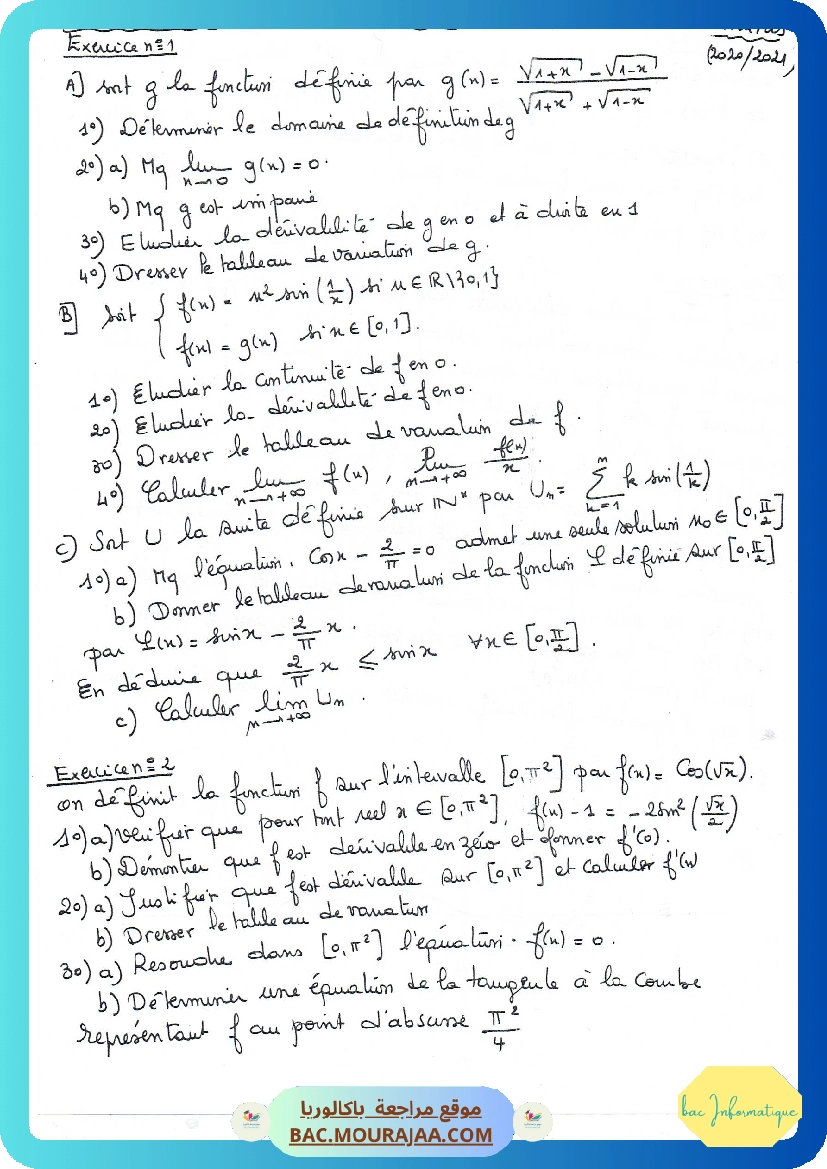 Exercice n=1
(2020/2021)
A] soit g la fonction définie par g(x) = (√1+x - √1-x) / (√1+x + √1-x)
1°) Déterminer le domaine de définition de g
2°) a) Mq lim x→0 g(x) = 0.
b) Mq g est impaire
3°) Etudier la dérivabilité de g en 0 et à droite en 1
4°) Dresser le tableau de variation de g.
B] Soit { f(x) = x² sin(1/x) si x ∈ ℝ\[0,1]
f(x) = g(x) si x ∈ [0,1].
1°) Etudier la continuité de f en 0.
2°) Etudier la dérivabilité de f en 0.
3°) Dresser le tableau de variation de f.
4°) Calculer lim x→+∞ f(x), lim x→+∞ f(x)/x.
C) Soit U la suite définie sur ℕ* par Un = Σ k=1 n k sin(1/k)
1°) a) Mq l'équation. Cos x - 2/π = 0 admet une seule solution x₀ ∈ [0,π/2]
b) Donner le tableau de variation de la fonction φ définie sur [0,π/2]
par φ(x) = sin x - 2/π x.
En déduire que 2/π x ≤ sin x ∀x ∈ [0,π/2].
c) Calculer lim n→+∞ Un.
Exercice n=2
on définit la fonction f sur l'intervalle [0,π²] par f(x) = Cos(√x).
1°) a) vérifier que pour tout réel x ∈ [0,π²], f(x) - 1 = -2sin²(√x/2)
b) Démontrer que f est dérivable en zéro et donner f'(0).
2°) a) Justifier que f est dérivable sur [0,π²] et calculer f'(x)
b) Dresser le tableau de variation
3°) a) Resoudre dans [0,π²] l'équation. f(x) = 0.
b) Déterminer une équation de la tangente à la courbe
représentant f au point d'abscisse π²/4
bac Informatique
موقع مراجعة باكالوريا
BAC.MOURAJAA.COM